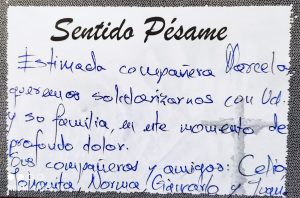 Sentido Pésame
Estimada compañera Marcela
queremos solidarizarnos con Ud.
y so familia, en este momento de
profundo dolor.
Sus compañeros y amigos: Celia
Norma Gerardo y Juan